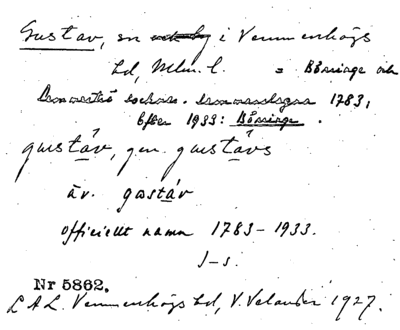 Gustav, sn i Vemmenhögs
hd, Mlm. l. = Börringe och
Lemmeströ socknar. sammanslagna 1783;
Efter 1933: Börringe.
gustáv, gen. gustávs
äv. gostáv
officiellt namn 1783-1933.
J-s.
Nr 5862.
LAL. Vemmenhögs hd, V. Velander 1927.